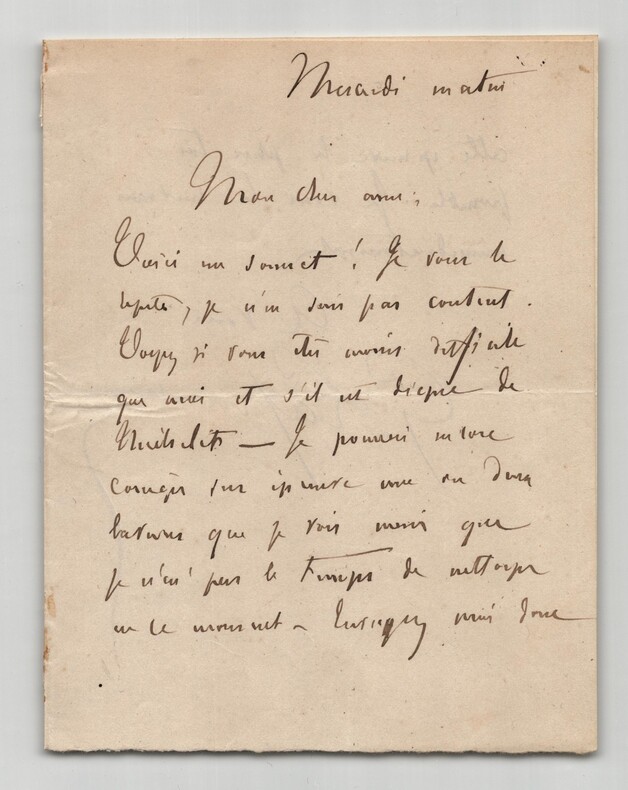 Mercredi matin
Mon cher ami,
Voici un sonnet ! Je vous le
répète, je n'en suis pas content.
Voyez si vous êtes moins difficile
que moi et s'il est digne de
Je pourrai encore
corriger sur épreuve une ou deux
bavures que je vois mais que
je n'ai pas le temps de nettoyer
en ce moment – Envoyez moi donc